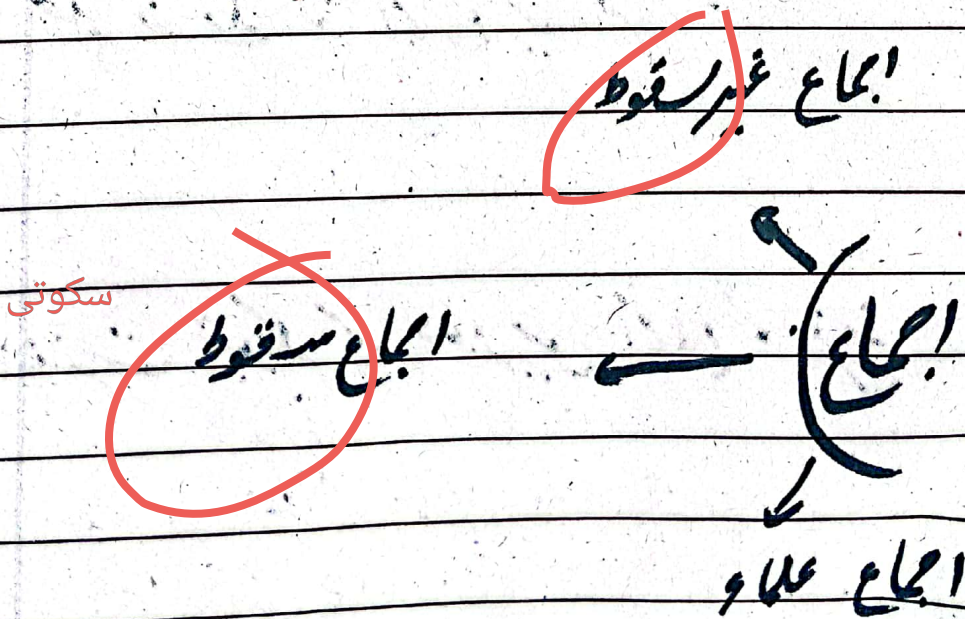 اجماع غیر سقوط
سکوتی
اجماع اجماع سقوط
اجماع علماء